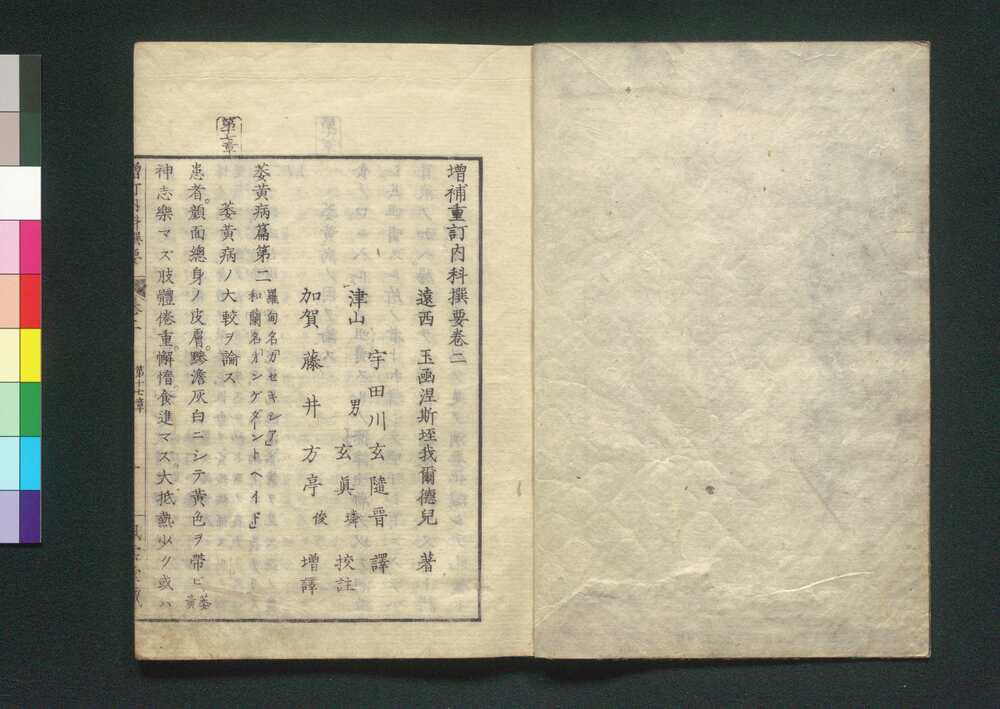 増補重訂内科撰要巻二
遠西 玉函涅斯垤我爾德兒 著
宇田川玄隨晋 譯
津山
男 玄眞璘 挍註
加賀 藤井方亭俊 増譯
萎黄病篇第二 羅甸名「カセキシア」
和蘭名「オンゲダーントヘイド」
第十七章
萎黄病ノ大較ヲ論ス
患者。顔面總身ノ皮膚。黪澹灰白ニシテ黄色ヲ帶ヒ 萎黄
神志樂マズ肢體倦重。懈惰食進マス。大抵熱少ク或ハ
第十七章